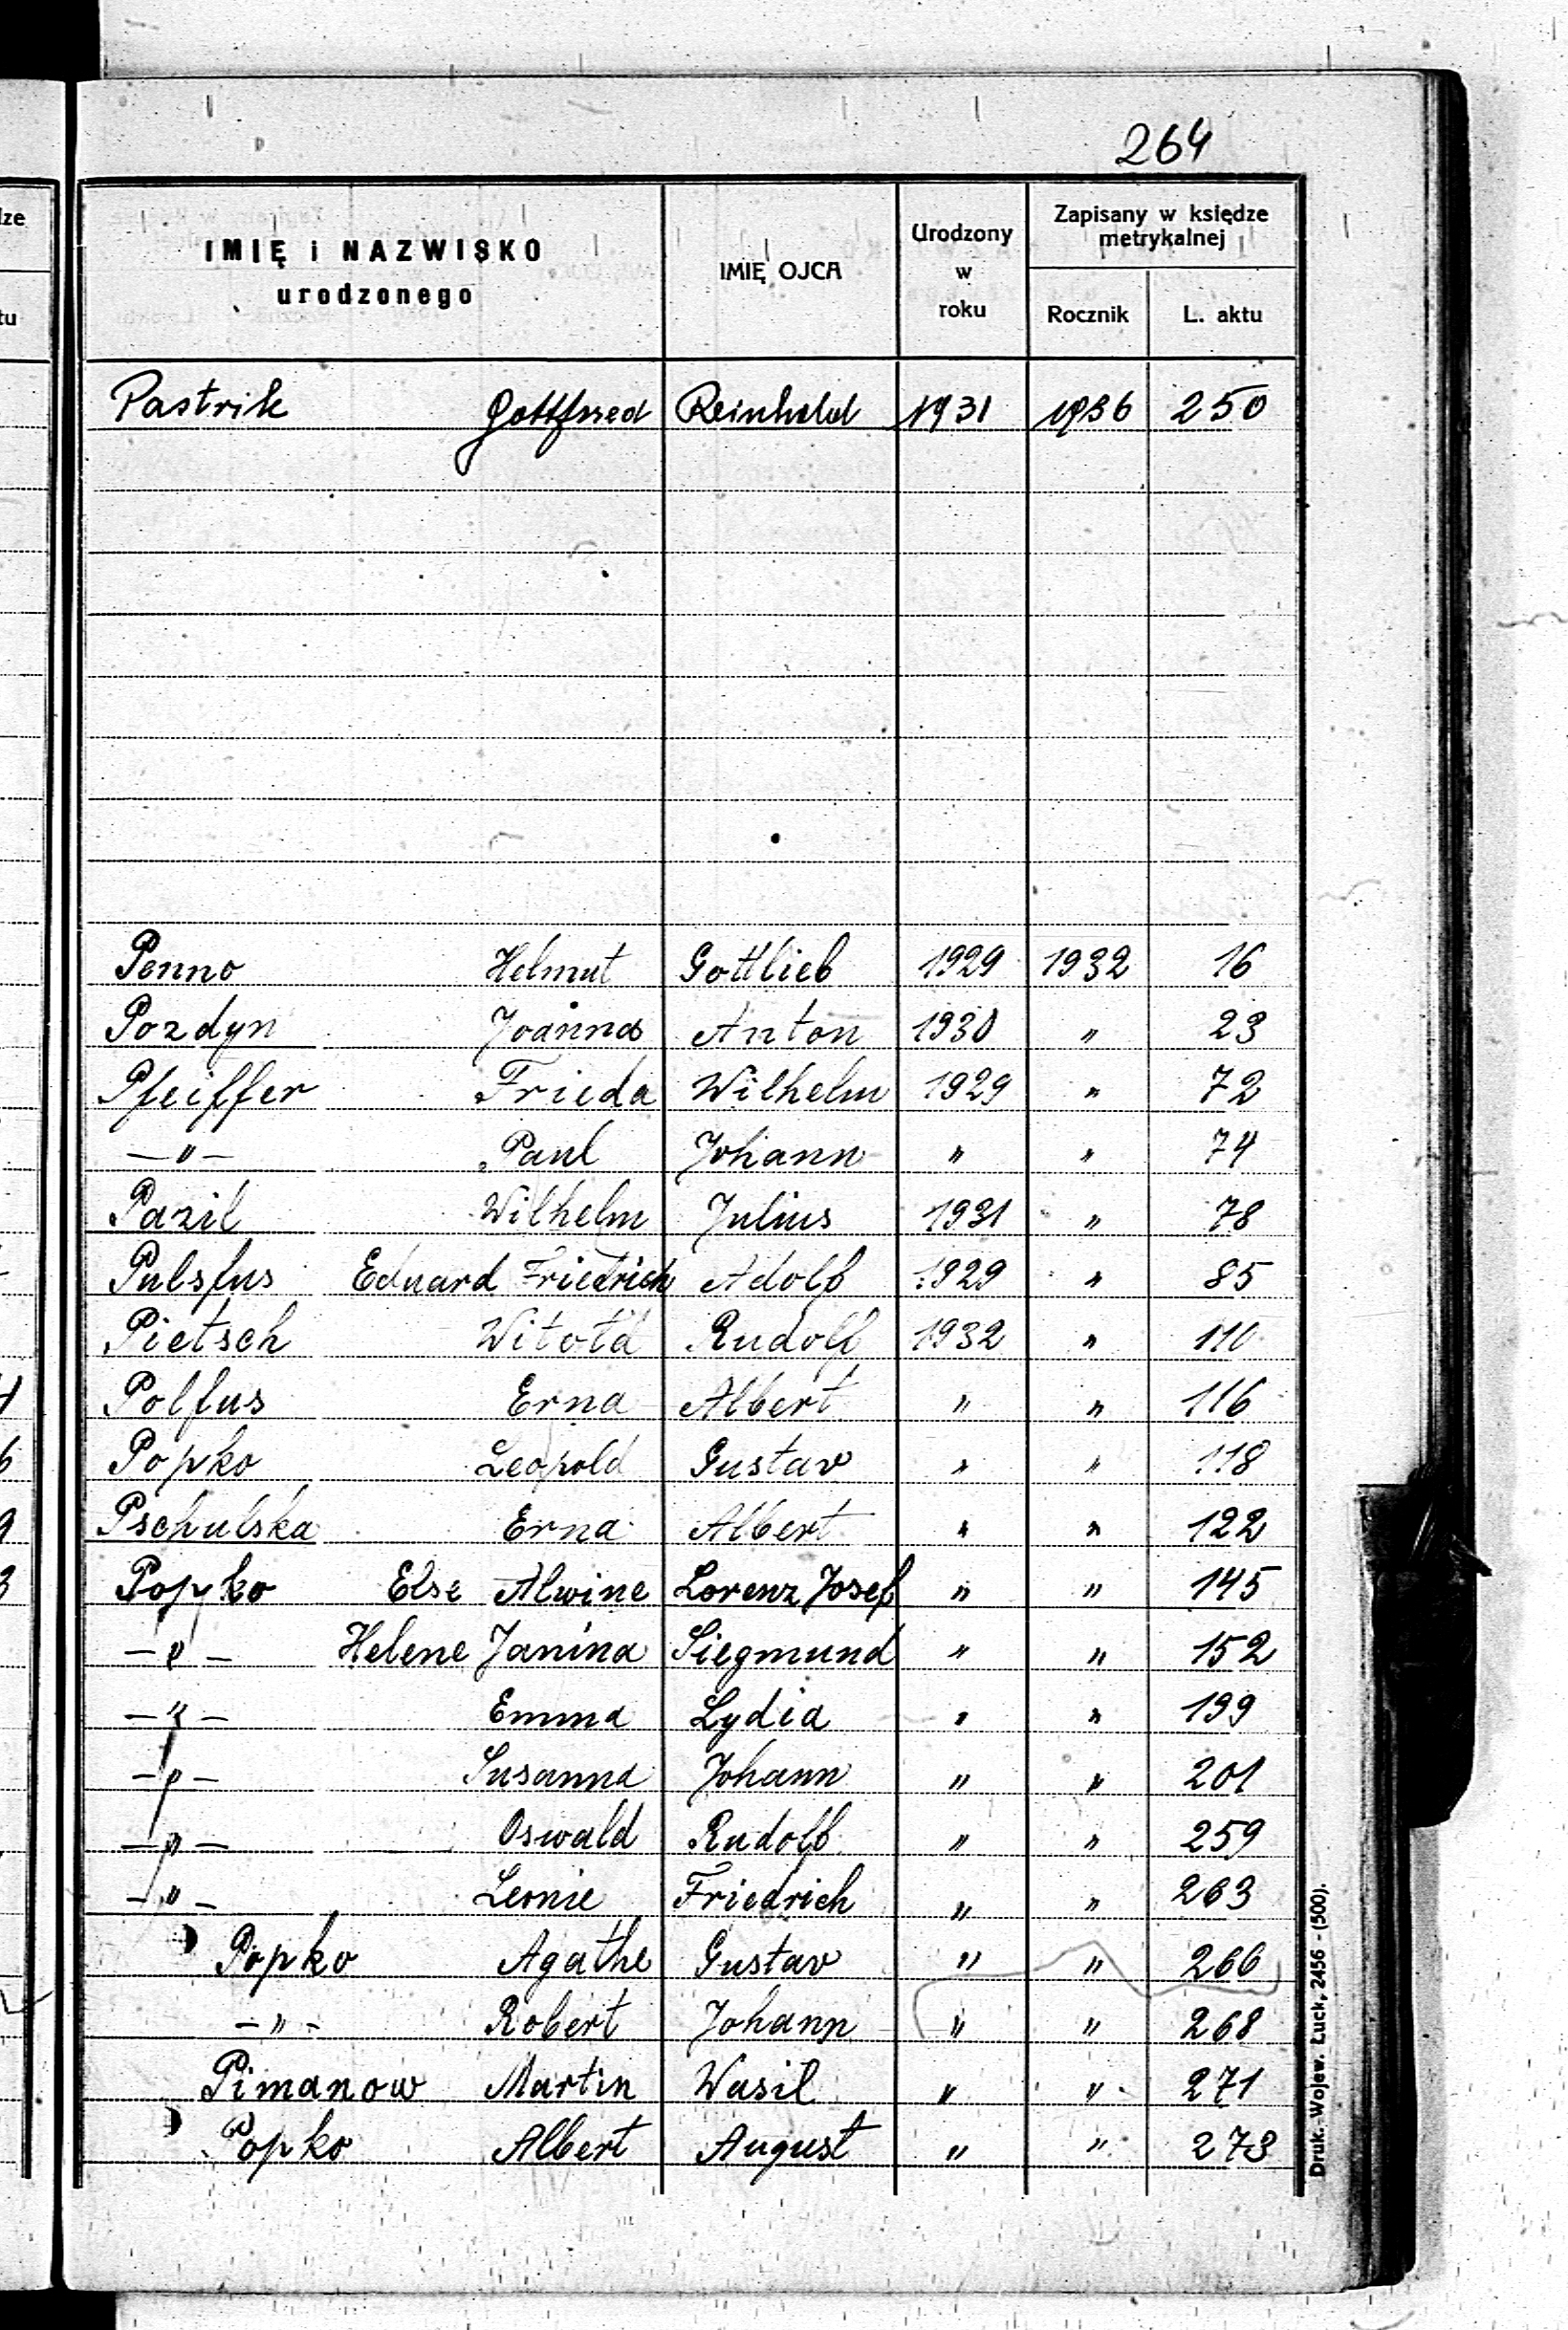 264
IMIĘ i NAZWISKO urodzonego IMIĘ OJCA Urodzony w roku Zapisany w księdze metrykalnej Rocznik L. aktu
Pastrik Gottfried Reinhold 1931 1936 250
Penno Helmut Gottlieb 1929 1932 16
Pozdyn Joanna Anton 1930 " 23
Pfeiffer Frieda Wilhelm 1929 " 72
—"— Paul Johann " " 74
Pazil Wilhelm Julius 1931 " 78
Pulsfus Eduard Friedrich Adolf 1929 " 85
Pietsch Witold Rudolf 1932 " 110
Polfus Erna Albert " " 116
Popko Leopold Gustav " " 118
Pschulska Erna Albert " " 122
Popko Else Alwine Lorenz Josef " " 145
—"— Helene Janina Siegmund " " 152
—"— Emma Lydia " " 199
—"— Susanna Johann " " 201
—"— Oswald Rudolf " " 259
—"— Leonie Friedrich " " 263
Popko Agathe Gustav " " 266
—"— Robert Johann " " 268
Pimanow Martin Wasil " " 271
Popko Albert August " " 273
Druk. Wojew. Łuck, 2456 - (500).